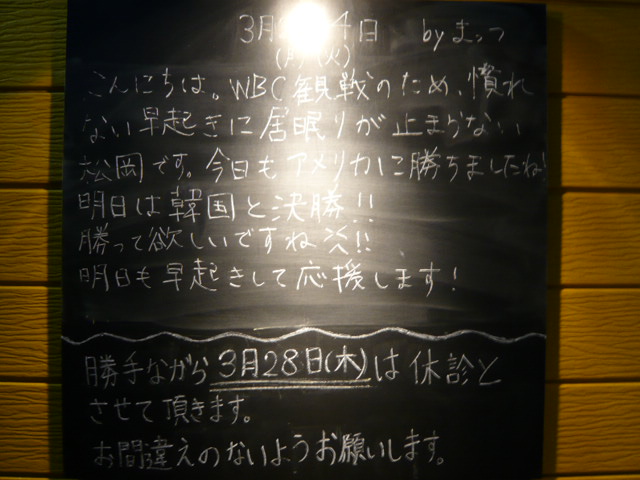 3月 4日 byまっつ
(月)(火)
こんにちは。WBC観戦のため、慣れ
ない早起きに居眠りが止まらない
松岡です。今日もアメリカに勝ちましたね!
明日は韓国と決勝!!
勝って欲しいですね!!
明日も早起きして応援します!
勝手ながら3月28日(木)は休診と
させて頂きます。
お間違えのないようお願いします。